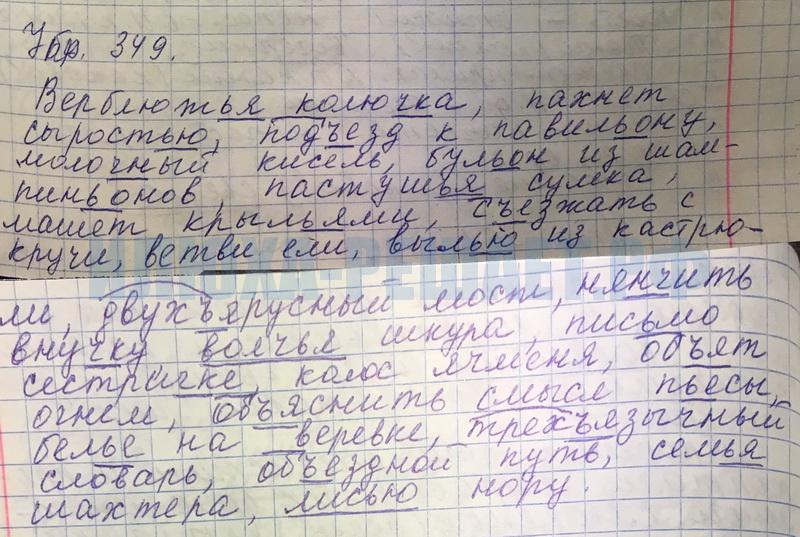 Упр. 349.
Верблюжья колючка, пахнет
сыростью, подъезд к павильону,
молочный кисель, бульон из шам-
пиньонов, пастушья сумка,
машет крыльями, съезжать с
кручи, ветви ели, вылью из кастрю-
ли, двухъярусный мост, нянчить
внучку волчья шкура, письмо
сестричке, колос ячменя, объят
огнем, объяснить смысл пьесы,
белье на веревке, трехъязычный
словарь, объездной путь, семья
шахтера, лисью нору.